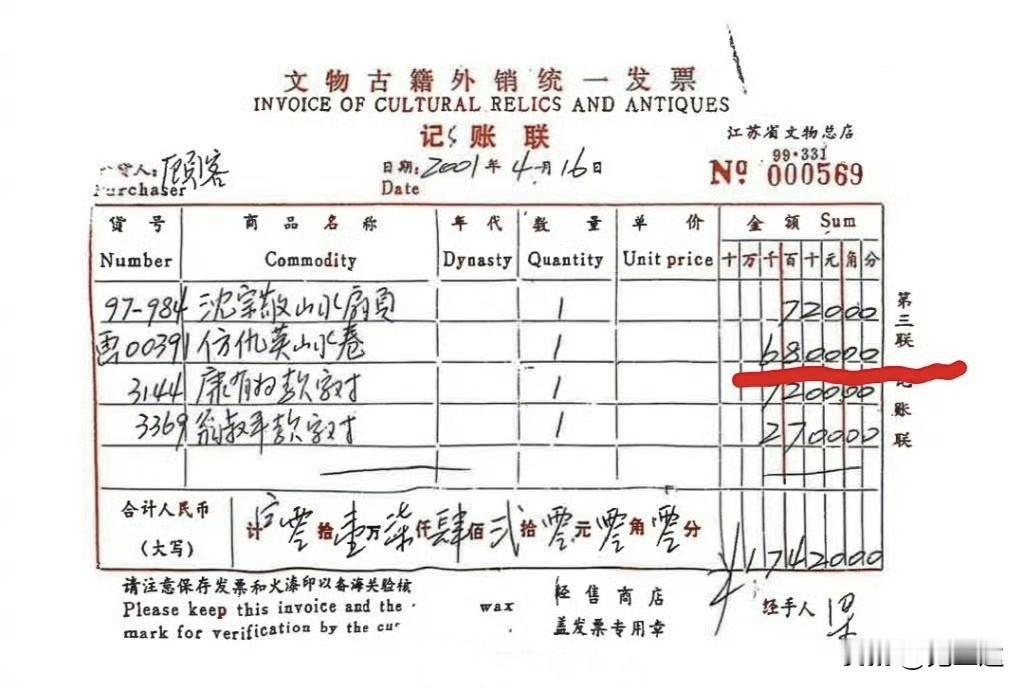 文物古籍外销统一发票
INVOICE OF CULTURAL RELICS AND ANTIQUES
记账联
江苏省文物总店
货人:顾客
Purchaser
日期:2001年4月16日
Date
99·331
Nº 000569
货号 商品名称 年代 数量 单价 金额 Sum
Number Commodity Dynasty Quantity Unit price 十万千百十元角分
97-984 沈宗敬山水扇页 1 72000
00391 仿仇英山水卷 1 680000
3144 康有为款字对 1 720000
3369 翁叔平款字对 1 270000
第三联 记账联
合计人民币
(大写)
计 零拾壹万柒仟肆佰贰拾零元零角零分 ¥1742000
请注意保存发票和火漆印以备海关验核
Please keep this invoice and the wax
mark for verification by the cus
经售商店
盖发票专用章
经手人